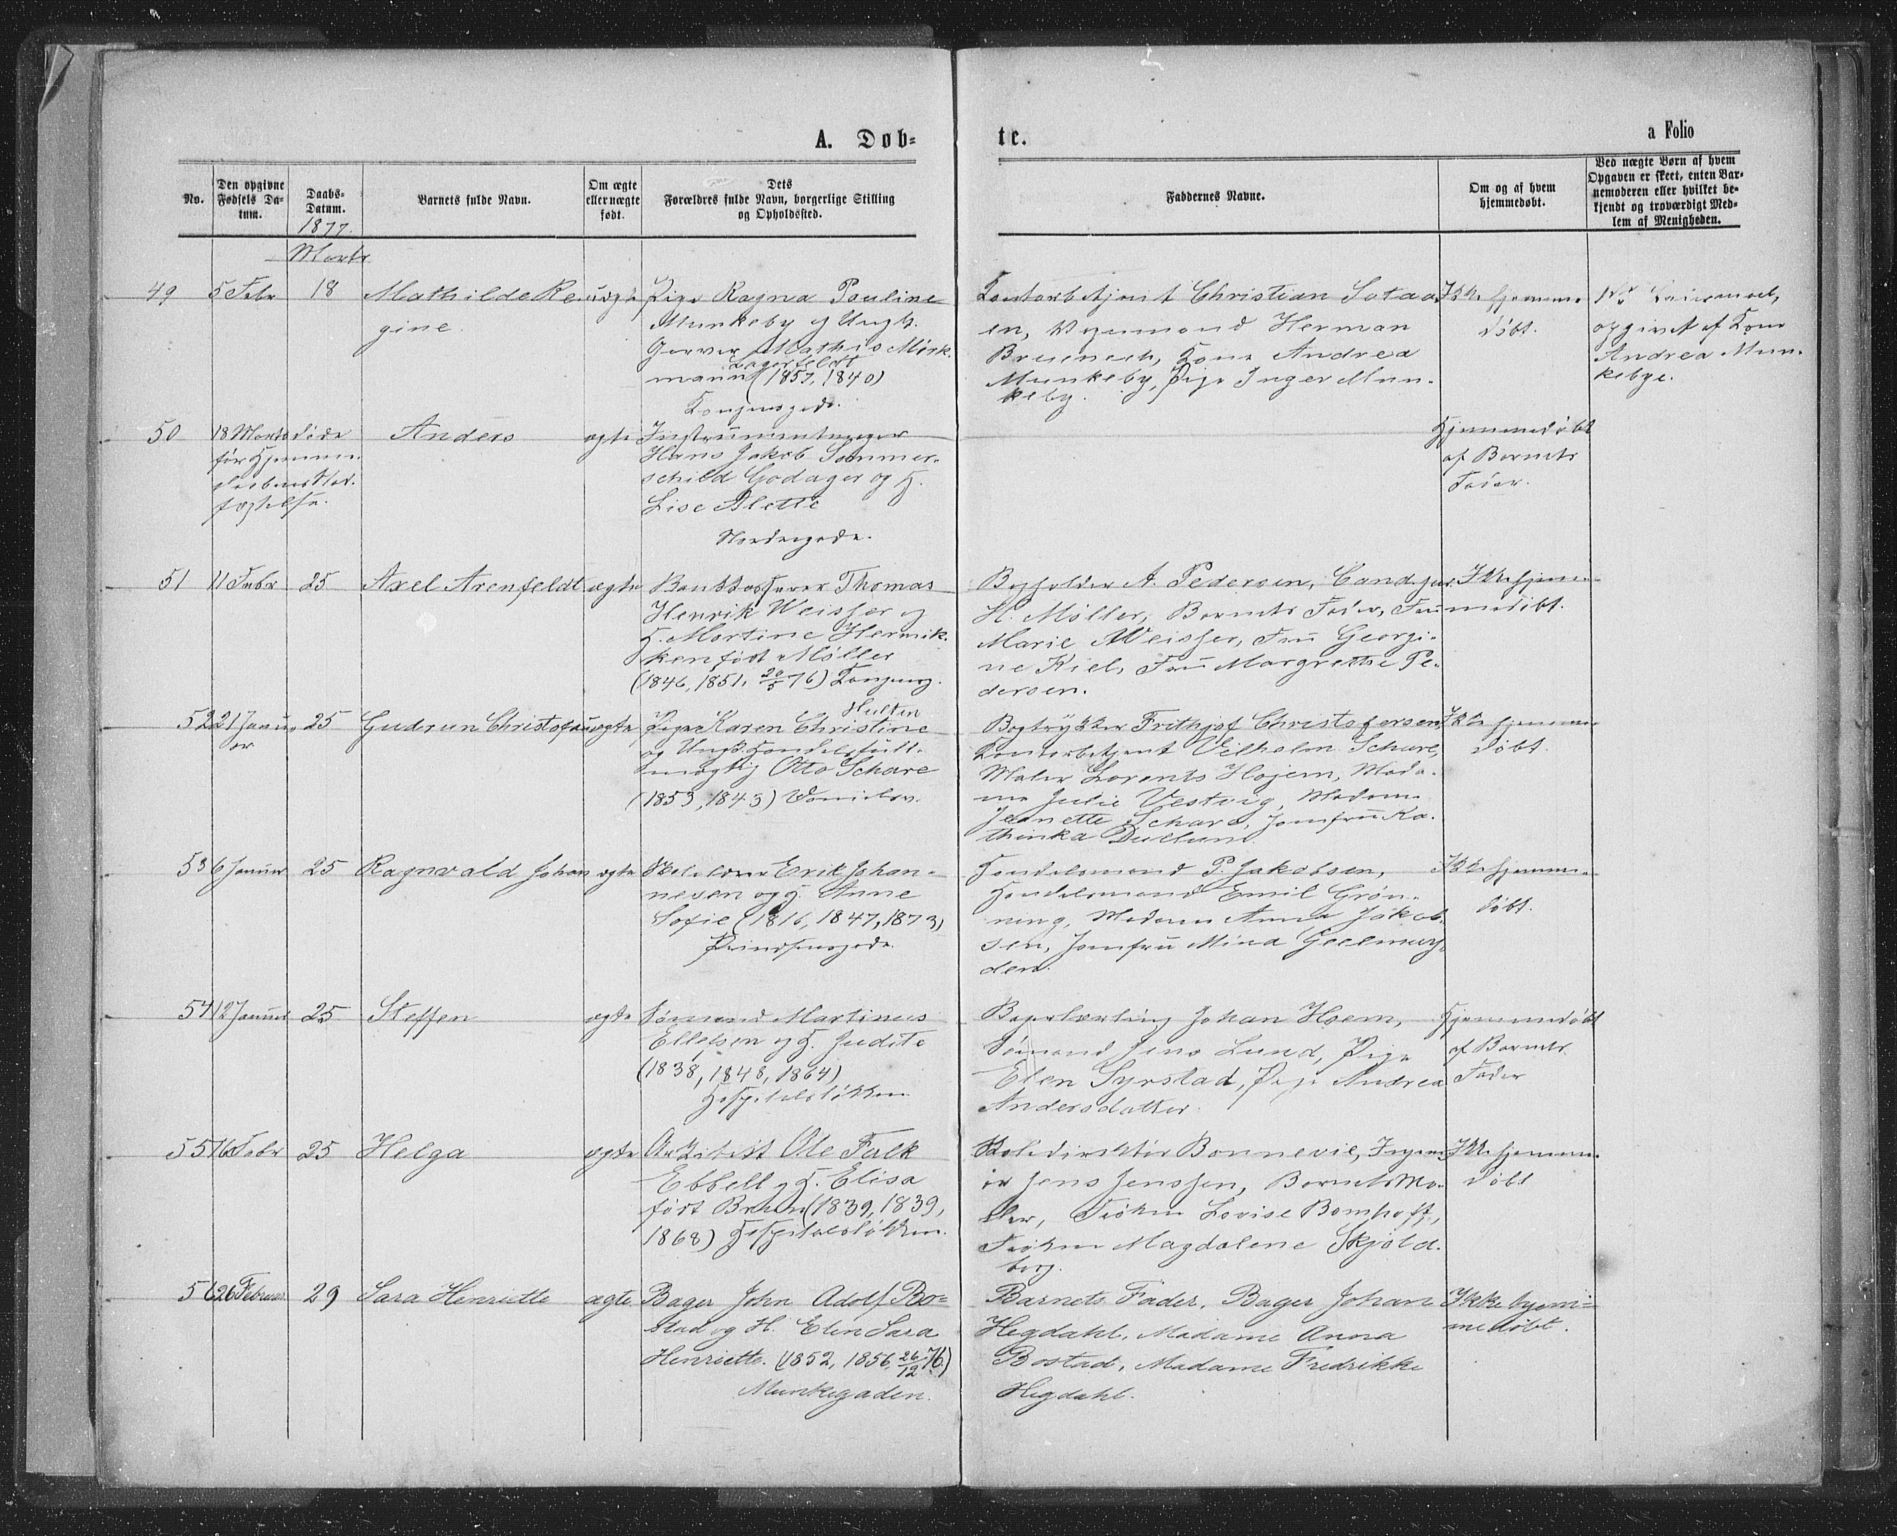 A. Døb-
te.
a Folio
No.
Den opgivne
Fødsels Da-
tum.
Daabs-
Datum.
1877.
Barnets fulde Navn.
Om ægte
eller uægte
født.
Dets
Forældres fulde Navn, borgerlige Stilling
og Opholdssted.
Faddernes Navne.
Om og af hvem
hjemmedøbt.
Ved uægte Børn af hvem
Opgaven er skeet, enten Bar-
nemoderen eller hvilket be-
kjendt og troværdigt Med-
lem af Menigheden.
Marts
49 5 Febr 18 Mathilde Re- uægte Pige Ragna Pauline
gine. Munkeby og Ungk.
Garver Mathis Mørk
Lagerfeldt
mann (1857, 1840)
Kongensgade.
Kontorbetjent Christian
en, Vognmand Herman
Kone Andrea
Munkeby, Pige Inger Mun-
keby.
Ikke hjemme-
døbt.
opgivet af Kone
Andrea Mun-
kebye.
50 18 Marts døde Anders ægte Instrumentmager
før Hjemme-
daabens Stad-
fæstelse.
Hans Jakob Sommer-
schild Godager og H.
Lise Aletте
Nordregade.
Hjemmedøbt
af Barnets
Fader.
51 11 Febr 25 Axel Arenfeldt ægte Bankkasserer Thomas
Henrik Weisser og
H. Martine Henrik-
ken født Møller
(1846, 1851, 20/5 76) Kongensg.
Bogholder A. Pedersen, Cand. jur.
H. Møller, Barnets Fader, Fru
Marie Weisser, Fru Georgi-
ne Kiel, Fru Margrethe Pe-
dersen.
Ikke hjem-
medøbt.
52 21 Janu- 25 Gudrun Christofa uægte Pige Karen Christine
ar
Hulten
og Ungk. Handelsfuld-
mægtig Otto Schare
(1853, 1843)
Bogtrykker Frithjof Christofersen,
Kontorbetjent Vilhelm Schare,
Maler Lorents Hojem, Mada-
me Julie Vestvig, Madam
Jeanette Schare, Jomfru Ka-
thinka Dullum.
Ikke hjemme-
døbt.
53 6 Januar 25 Ragnvald Johan ægte Erik Johan-
nesen og H. Anne
Sofie (1816, 1847, 1873)
Prindsensgade.
Handelsmand P. Jakobsen,
Handelsmand Emil Grøn-
ning, Madam Anna Jakob-
sen, Jomfru Mina Geelmuy-
den.
Ikke hjemme-
døbt.
54 12 Januar 25 Steffen ægte Sømand Martinus
Ellefsen og H. Judite
(1838, 1848, 1864)
Hospitalsløkken
Bagerlærling Johan Hoem,
Sømand Jens Lund, Pige
Elen Syrstad, Pige Andrea
Andersdatter.
Hjemmedøbt
af Barnets
Fader
55 16 Febr 25 Helga ægte Arkitekt Ole Falk
Ebbell og H. Elisa
født Bruun (1839, 1839,
1868) Hospitalsløkken.
Skoledirektør Bonnevie, Ingeni-
ør Jens Jenssen, Barnets Mo-
der, Frøken Lovise Bomhoff,
Frøken Magdalene Skjold-
borg.
Ikke hjemme-
døbt
56 26 Februar 29 Sara Henriette ægte Bager John Adolf Bo-
stad og H. Elen Sara
Henriette. (1852, 1856, 26/12 76)
Munkegaden.
Barnets Fader, Bager Johan
Hegdahl, Madame Anna
Bostad, Madame Fredrikke
Hegdahl.
Ikke hjem-
medøbt.